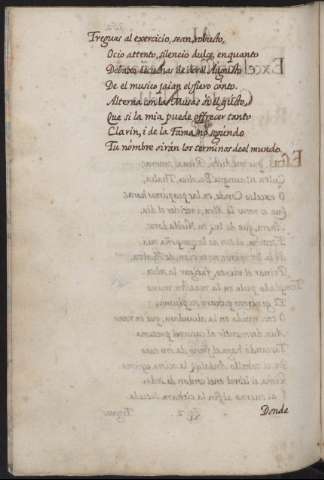 Treguas al exercicio sean robusto,
Ocio attento, silencio dulce, en quanto
Debaxo escuchas de dosel Augusto
Del musico jaian el fiero canto.
Alterna con las Musas oi el gusto,
Que si la mia puede offrecer tanto
Clarin, i de la Fama no segundo
Tu nombre oiran los terminos del mundo.
Donde